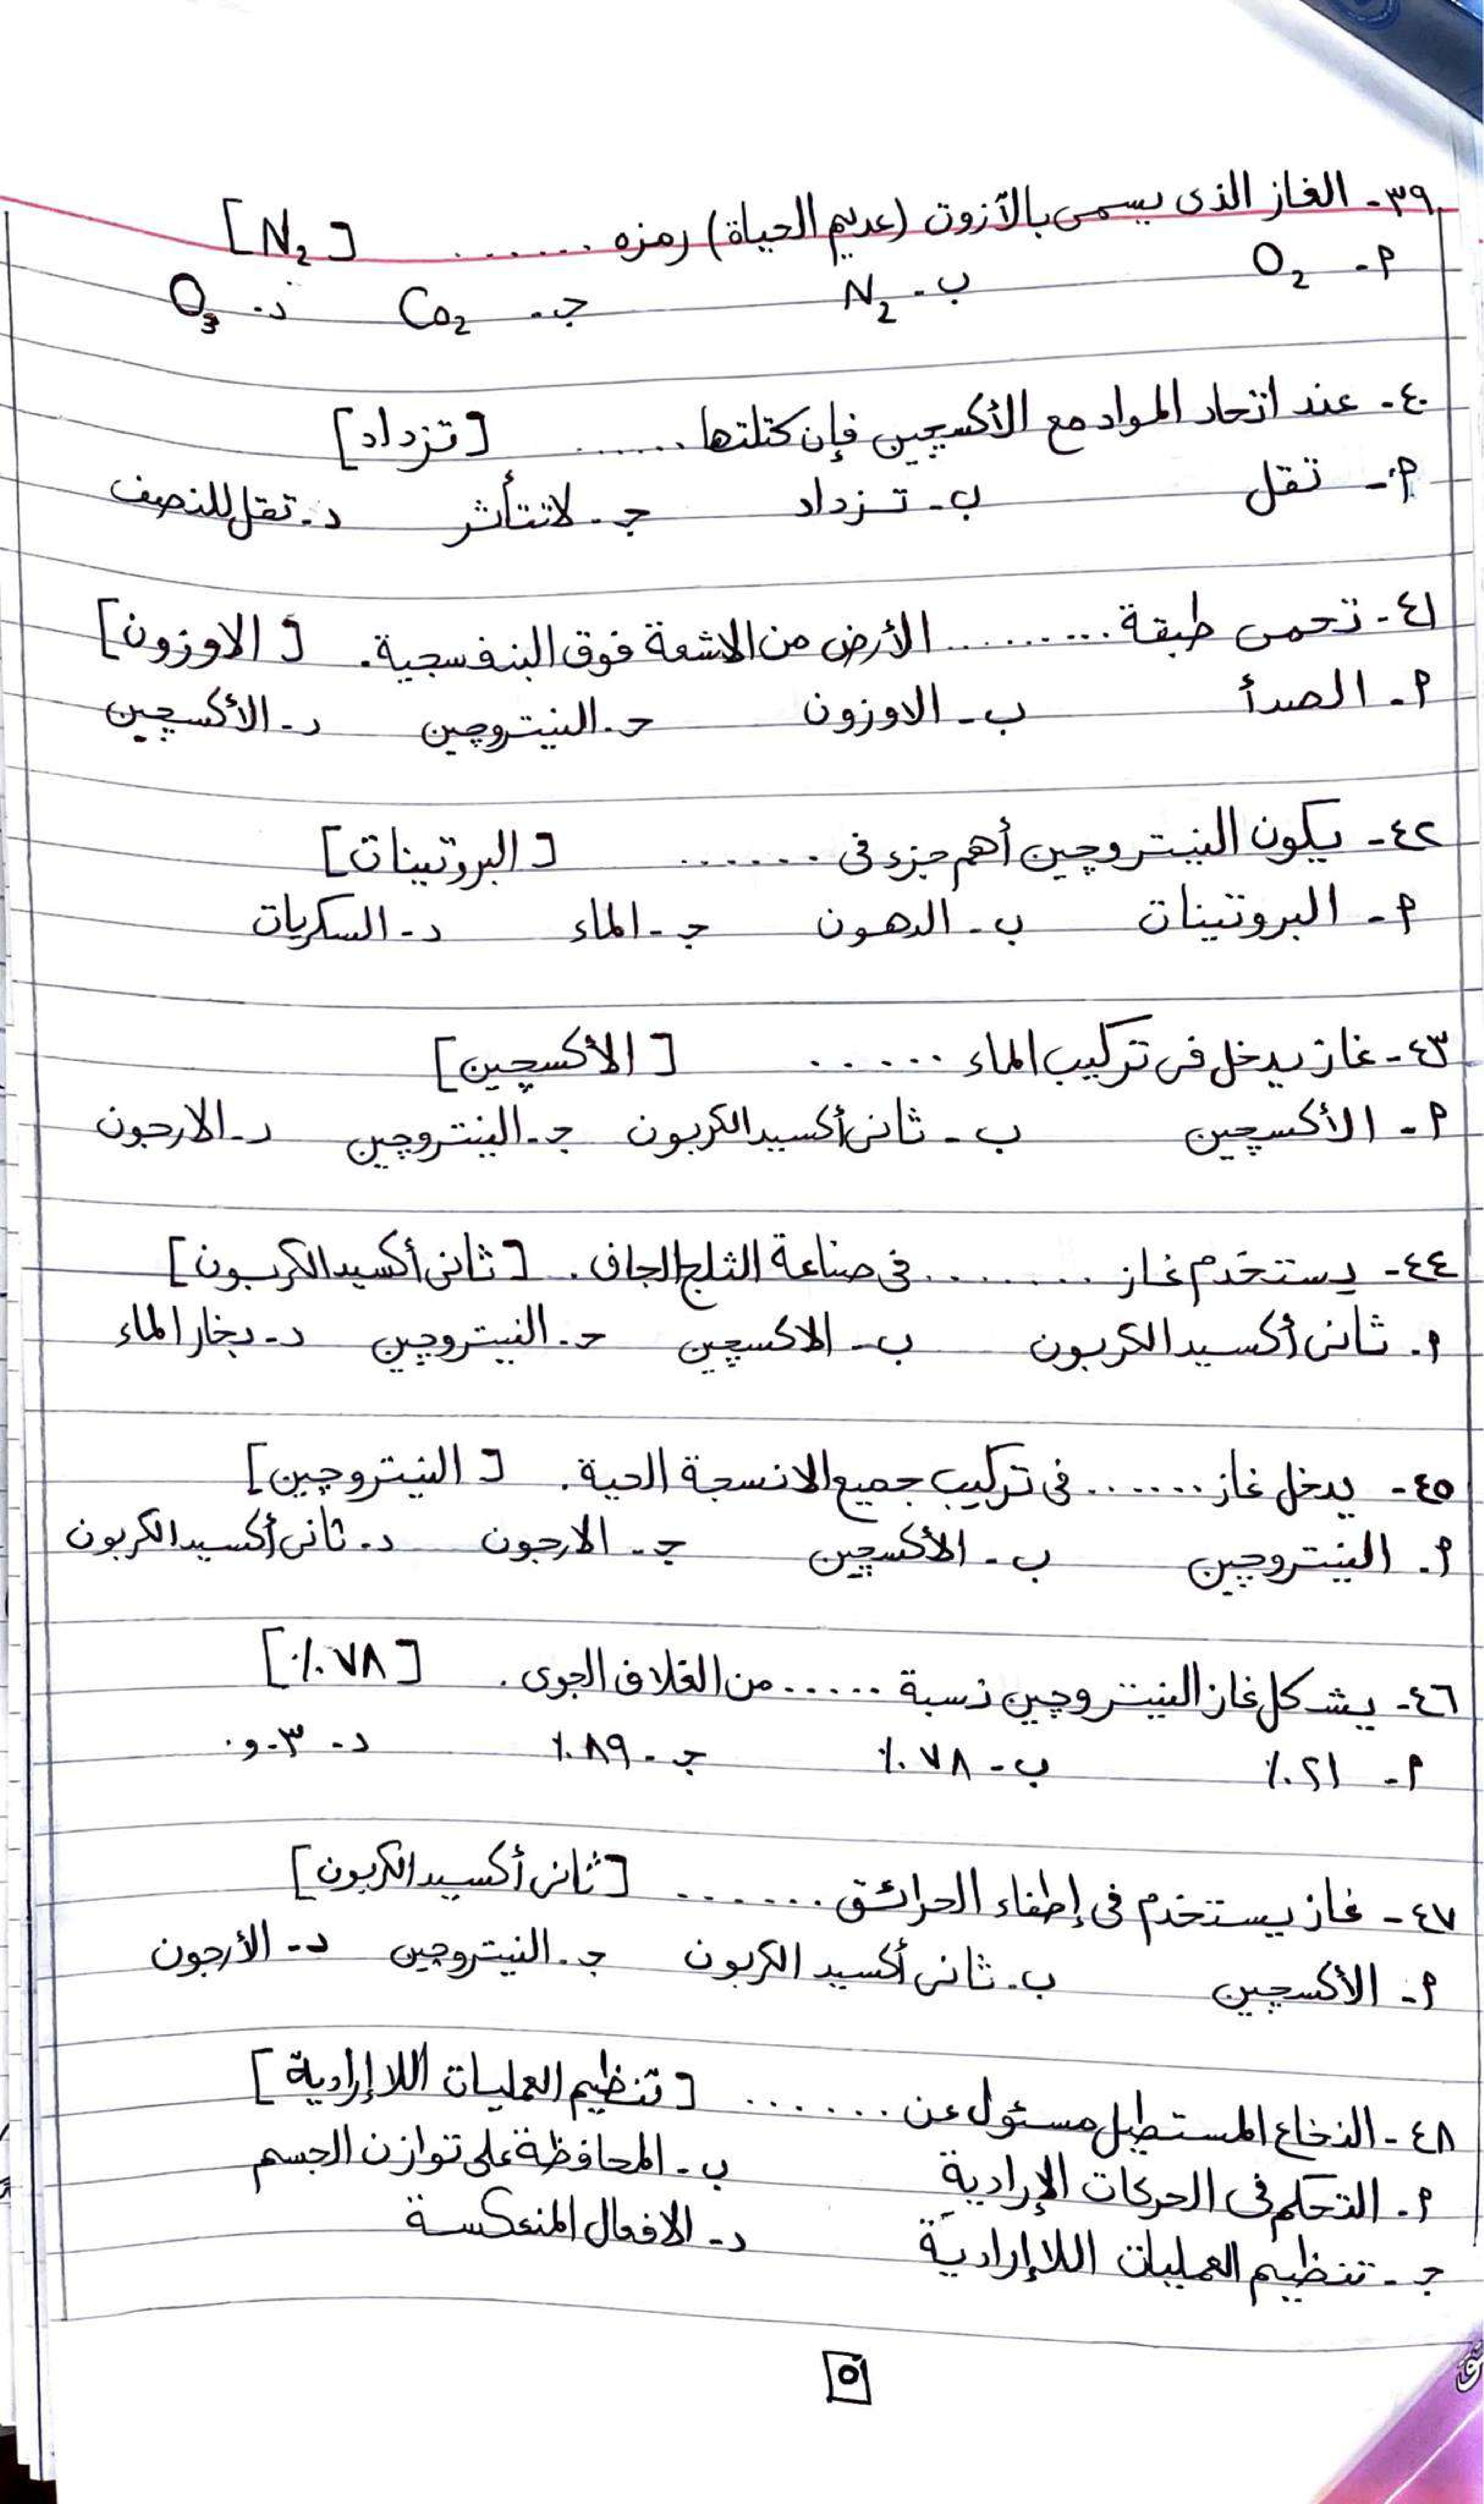 ٣٩- الغاز الذى يسمى بالآزوت (عديم الحياة) رمزه ...... [N₂]
أ- O₂ ب- N₂ جـ- Co₂ د- O₃
٤٠- عند اتحاد المواد مع الأكسچين فإن كتلتها ...... [تزداد]
أ- تقل ب- تزداد جـ- لاتتأثر د- تقل للنصف
٤١- تحمى طبقة ......... الأرض من الاشعة فوق البنفسجية. [الاوزون]
أ- الصدأ ب- الاوزون حـ- النيتروچين د- الأكسچين
٤٢- يكون النيتروچين أهم جزء فى ...... [البروتينات]
أ- البروتينات ب- الدهون جـ- الماء د- السكريات
٤٣- غاز يدخل فى تركيب الماء ..... [الأكسچين]
أ- الأكسچين ب- ثانى أكسيد الكربون جـ- النيتروچين د- الارجون
٤٤- يستخدم غاز ........ فى صناعة الثلج الجاف. [ثانى أكسيد الكربون]
أ- ثانى أكسيد الكربون ب- الاكسچين حـ- النيتروچين د- بخار الماء
٤٥- يدخل غاز ...... فى تركيب جميع الانسجة الحية. [النيتروچين]
أ- النيتروچين ب- الأكسچين جـ- الارجون د- ثانى أكسيد الكربون
٤٦- يشكل غاز النيتروچين نسبة ...... من الغلاف الجوى. [٧٨٪]
أ- ٢١٪ ب- ٧٨٪ جـ- ٨٩٪ د- ٠٫٠٣
٤٧- غاز يستخدم فى إطفاء الحرائق ...... [ثانى أكسيد الكربون]
أ- الأكسچين ب- ثانى أكسيد الكربون جـ- النيتروچين د- الأرجون
٤٨- النخاع المستطيل مسئول عن ...... [تنظيم العمليات اللاإرادية]
أ- التحكم فى الحركات الإرادية ب- المحافظة على توازن الجسم
جـ- تنظيم العمليات اللاإرادية د- الافعال المنعكسة
٥